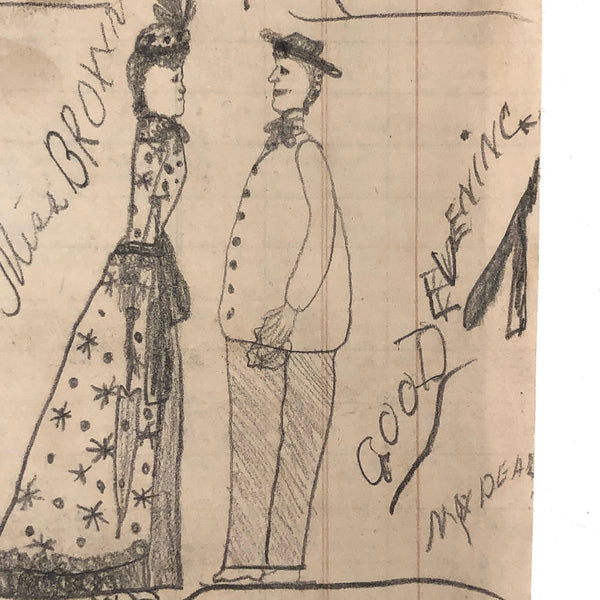 Miss BROWN
GOOD EVENING
MY DEAR